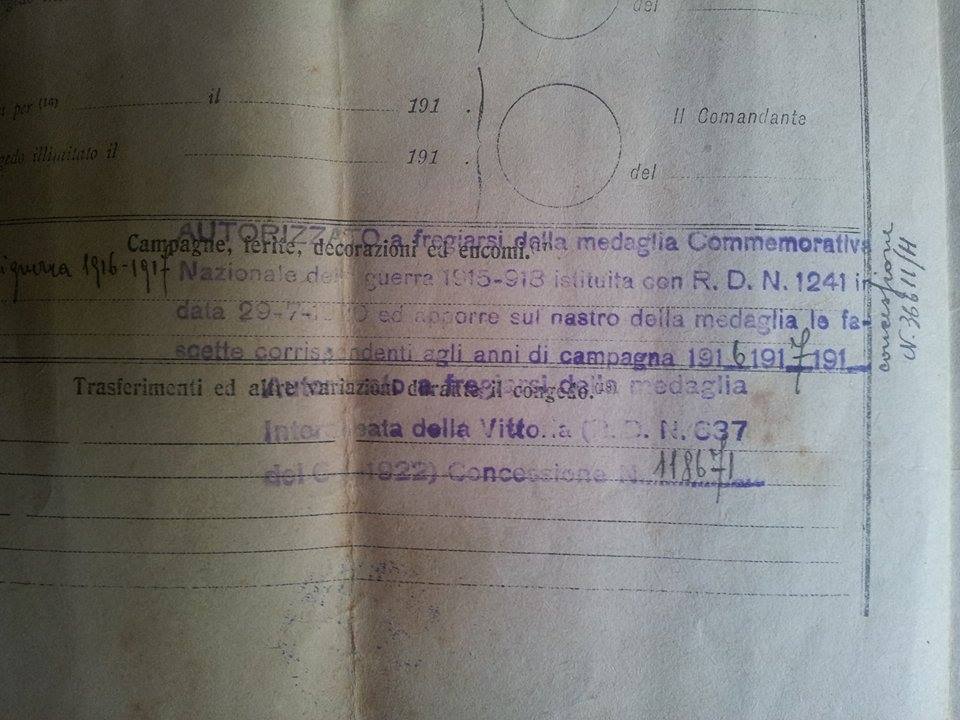 del
per (16) il 191 .
Il Comandante
illimitato il 191 .
del
Campagne, ferite, decorazioni ed encomi.
guerra 1916-1917
AUTORIZZATO a fregiarsi della medaglia Commemorativa
Nazionale guerra 1915-918 istituita con R. D. N. 1241 in
data 29-7- ed apporre sul nastro della medaglia le fa-
scette corrispondenti agli anni di campagna 1916 1917 191
concessione
N. 36611/H
Trasferimenti ed altre variazioni durante il congedo.
Autorizzato a fregiarsi della medaglia
della Vittoria D. N. 637
1922) Concessione N. 118671